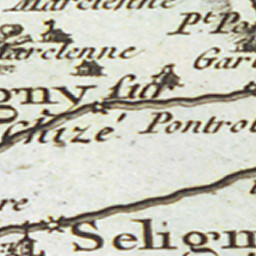 Marcienne
Pt. Po
Marcienne
Gar
gny sur
Chizé
Pontrol
re
Selign